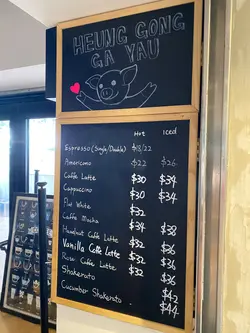 HEUNG GONG
GA YAU
Hot Iced
Espresso (Single/Double) $18/22
Americano $22 $26
Caffe Latte $30 $34
Cappuccino $30 $34
Flat White $32
Caffe Mocha $34 $38
Hazelnut Caffe Latte $32 $36
Vanilla Caffe Latte $32 $36
Rose Caffe Latte $32 $36
Shakerato $42
Cucumber Shakerato $44